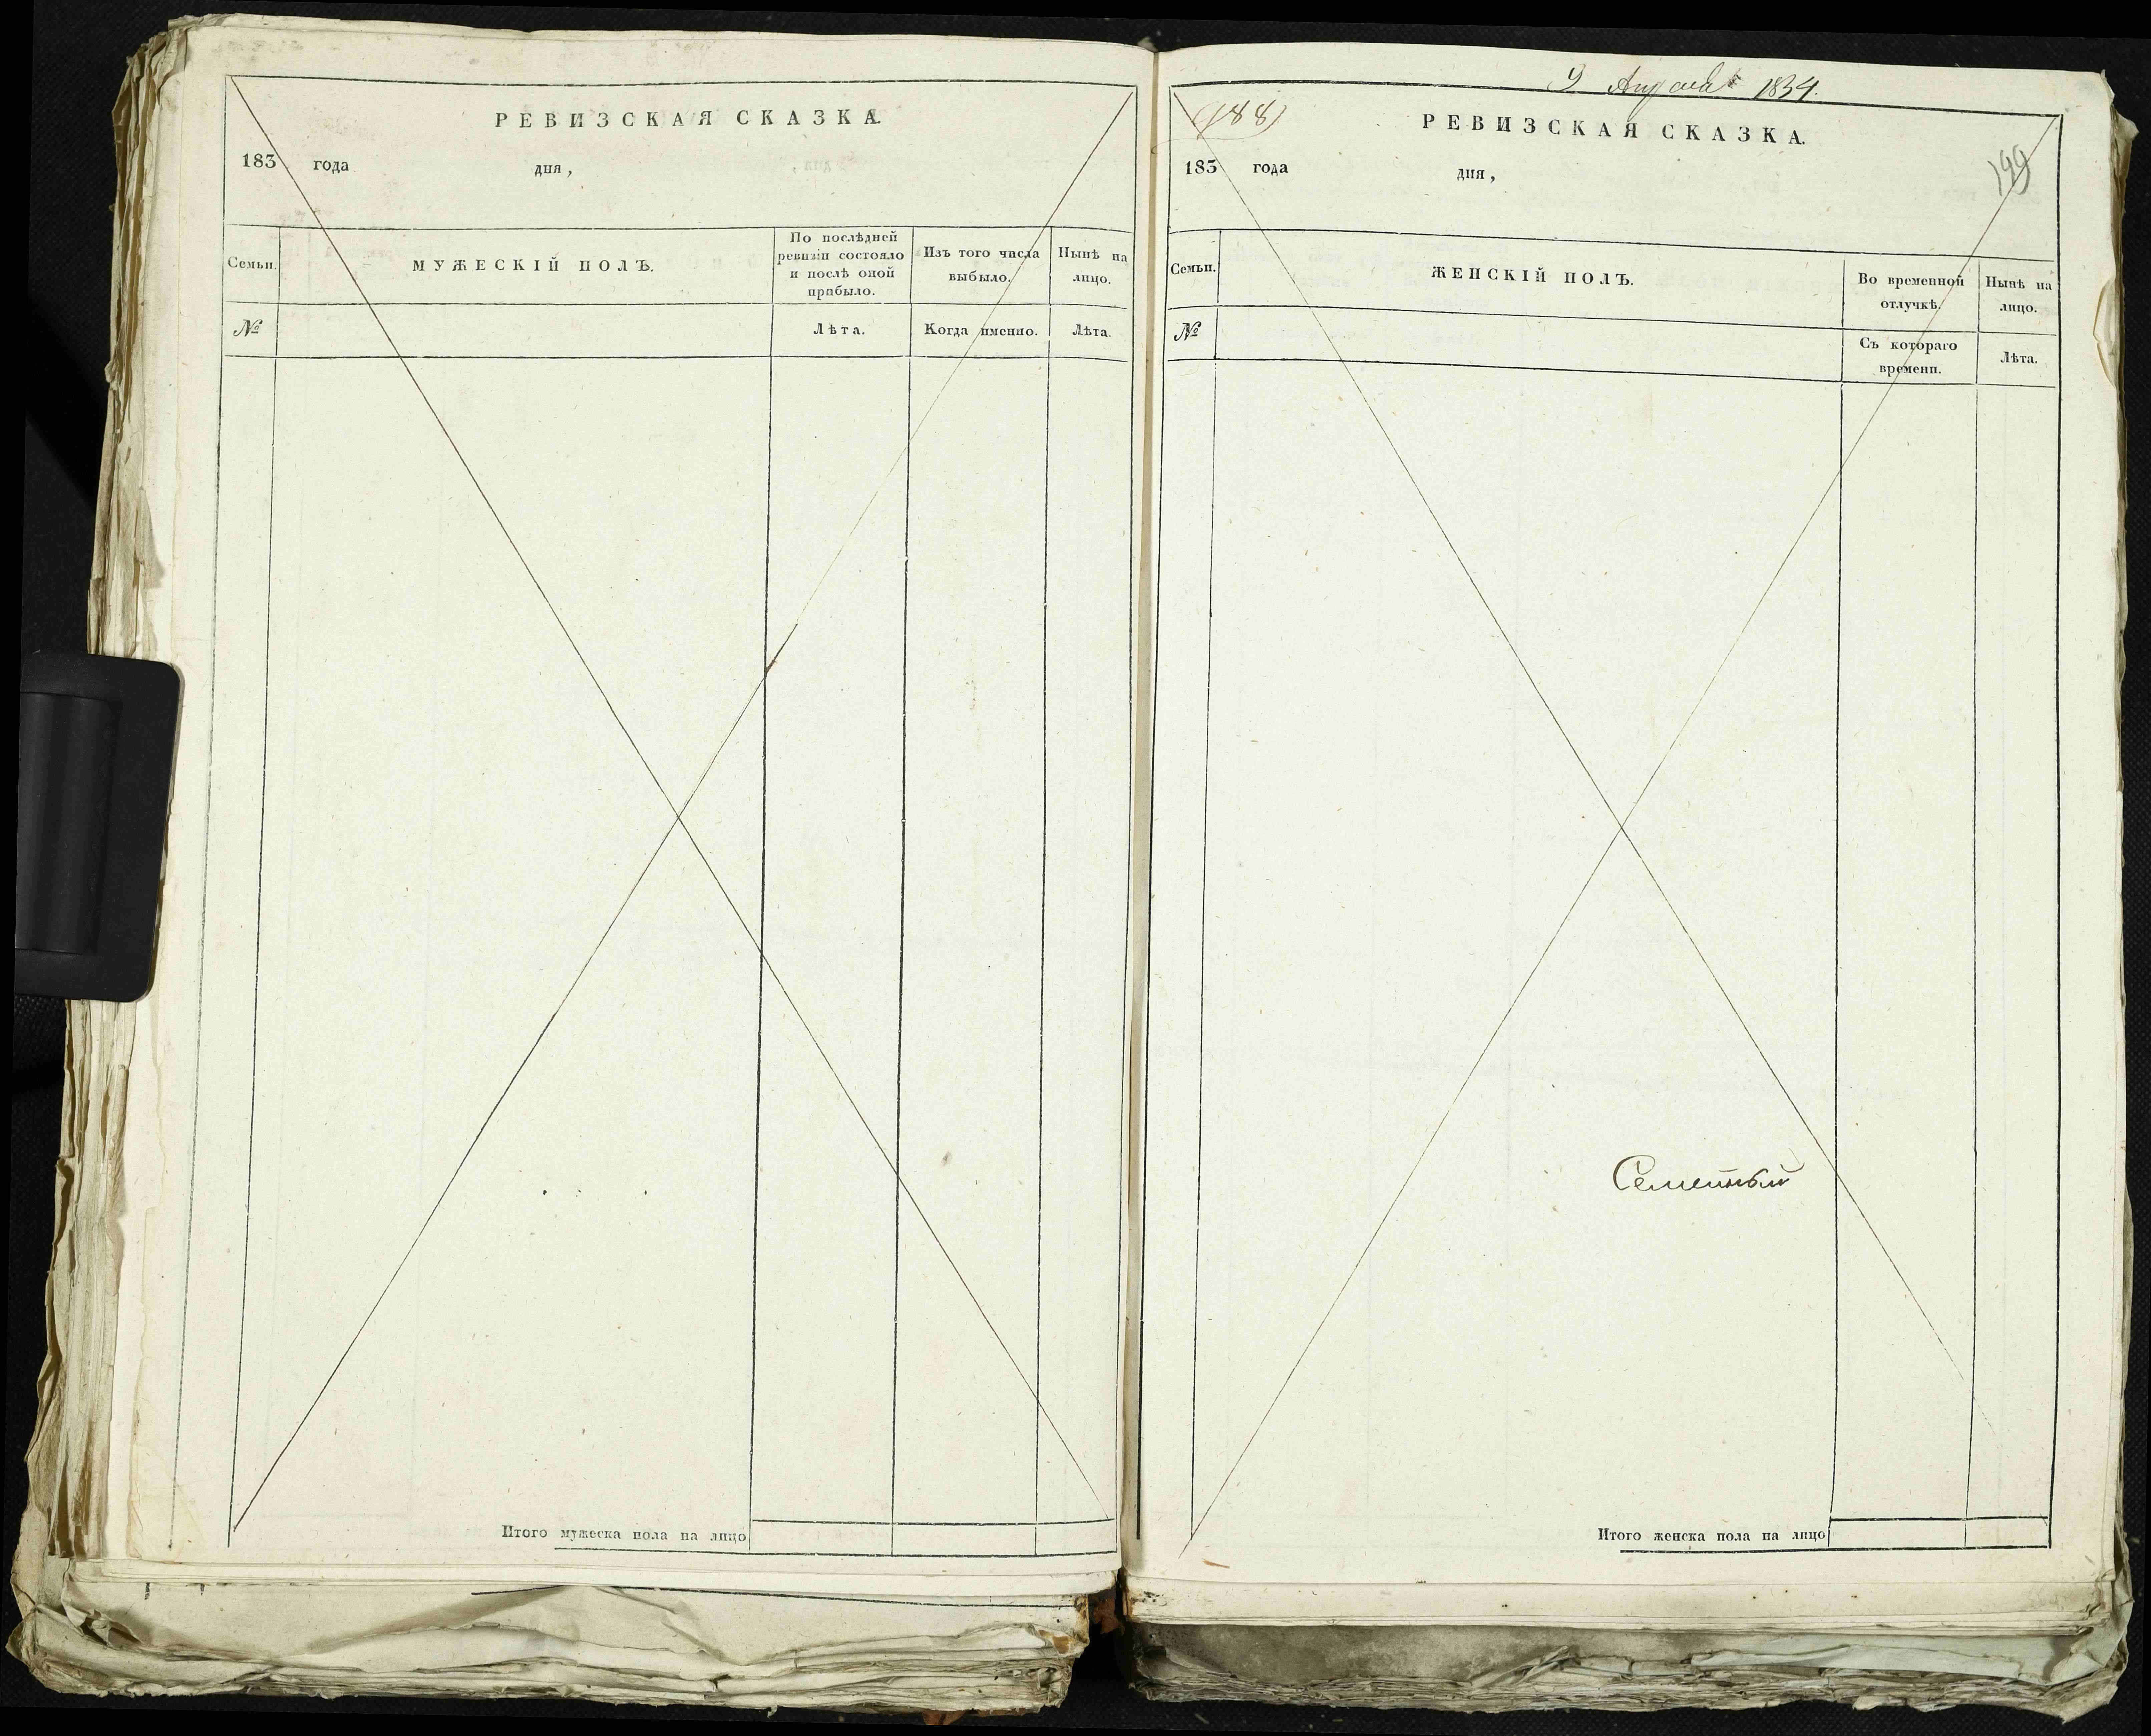 РЕВИЗСКАЯ СКАЗКА.
183 года дня,
Семьи.
МУЖЕСКІЙ ПОЛЪ.
По послѣдней
ревизіи состояло
и послѣ оной
прибыло.
Изъ того числа
выбыло.
Нынѣ на
лицо.
№
Лѣта.
Когда именно.
Лѣта.
Итого мужеска пола на лицо
9 Апреля 1834.
188
РЕВИЗСКАЯ СКАЗКА.
199
183 года дня,
Семьи.
ЖЕНСКІЙ ПОЛЪ.
Во временной
отлучкѣ.
Нынѣ на
лицо.
№
Съ котораго
времени.
Лѣта.
Семейный
Итого женска пола на лицо